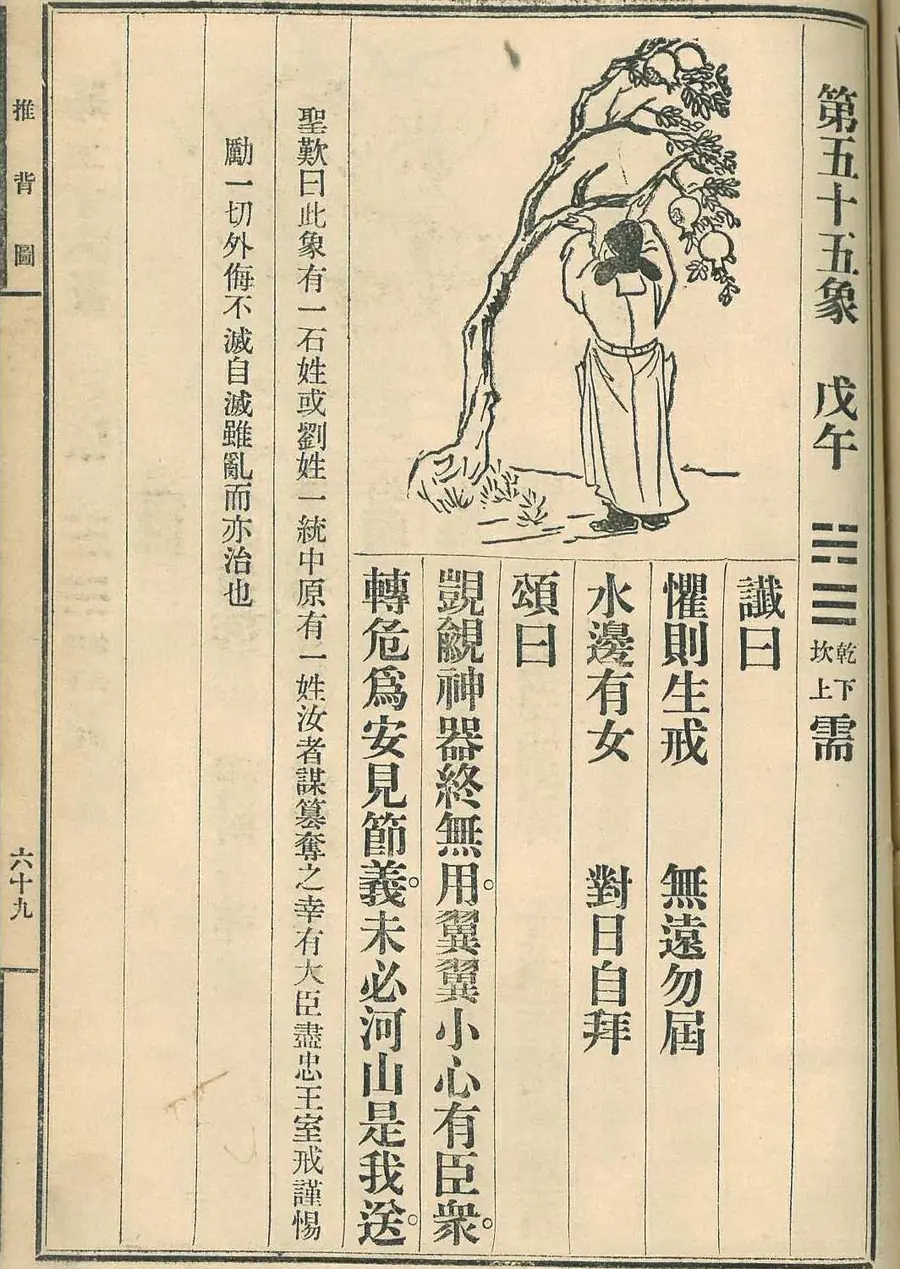 第五十五象 戊午 坎上乾下 需
讖曰
懼則生戒 無遠勿屆
水邊有女 對日自拜
頌曰
覬覦神器終無用。翼翼小心有臣衆。
轉危爲安見節義。未必河山是我送。
聖歎曰此象有一石姓或劉姓一統中原有一姓汝者謀篡奪之幸有大臣盡忠王室戒謹惕
勵一切外侮不滅自滅雖亂而亦治也
推背圖
六十九